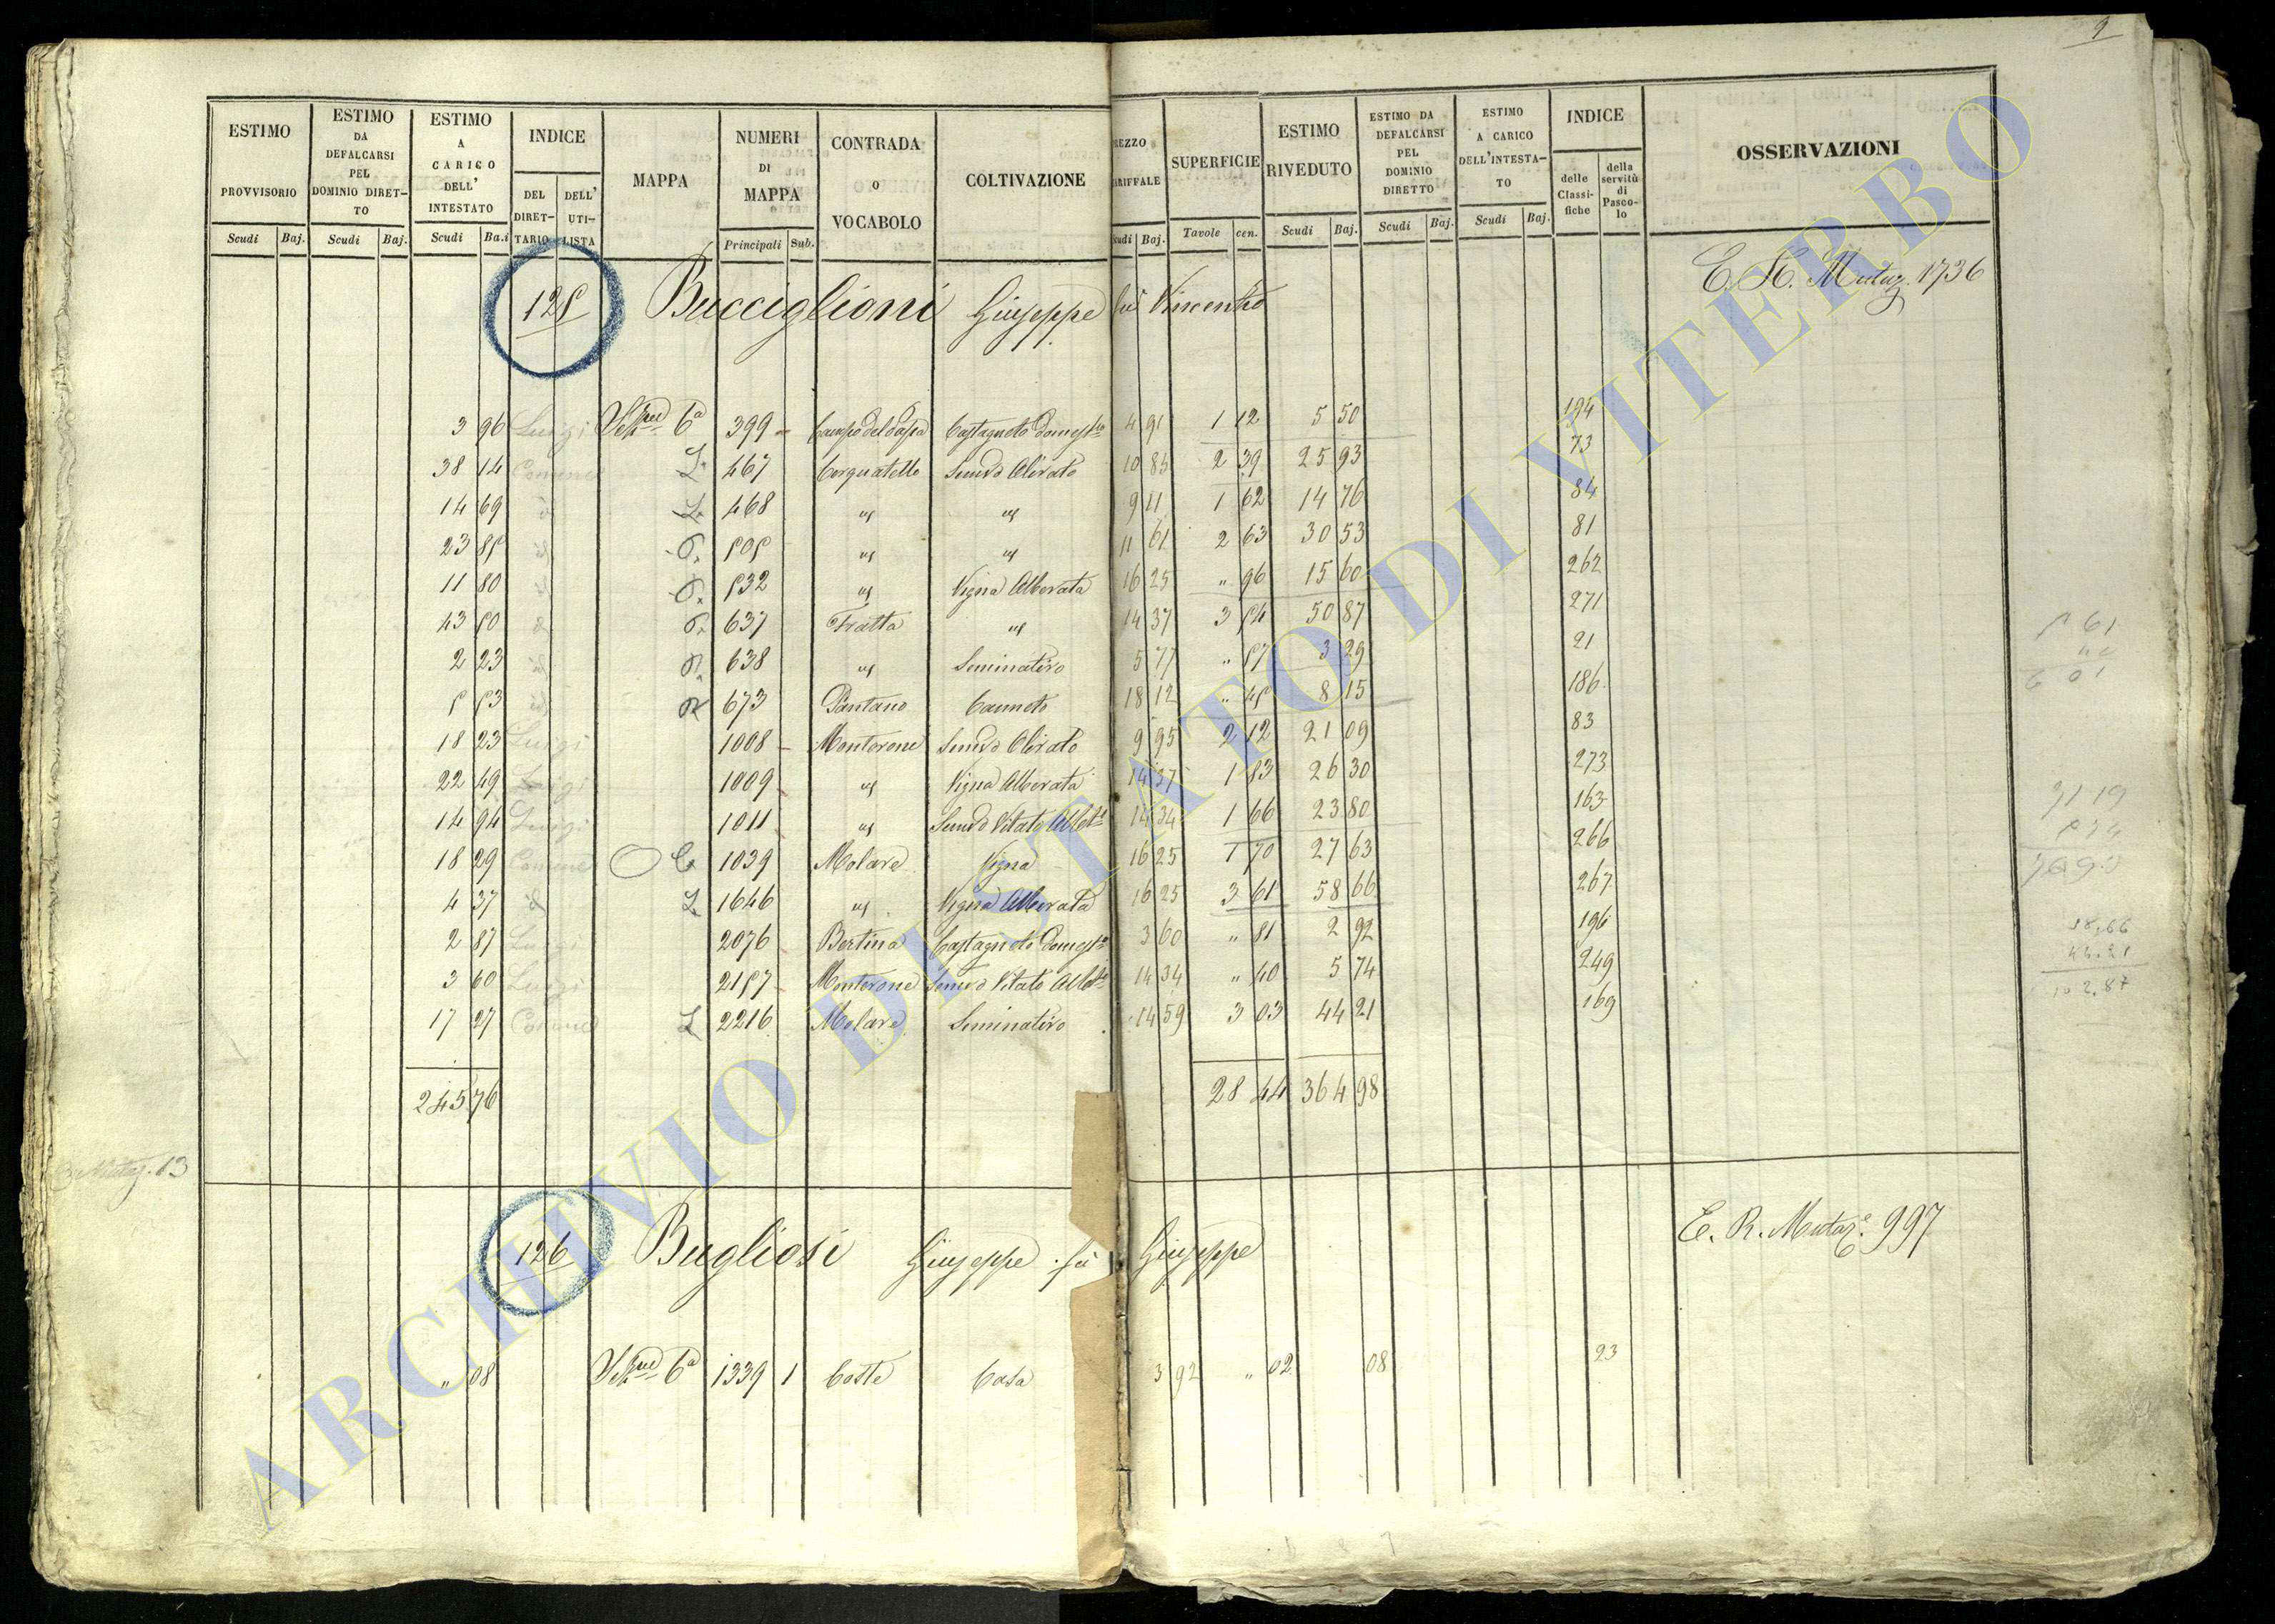 9
ESTIMO PROVVISORIO | ESTIMO DA DEFALCARSI PEL DOMINIO DIRETTO | ESTIMO A CARICO DELL' INTESTATO | INDICE | MAPPA | NUMERI DI MAPPA | CONTRADA O VOCABOLO | COLTIVAZIONE | REZZO RIFFALE | SUPERFICIE | ESTIMO RIVEDUTO | ESTIMO DA DEFALCARSI PEL DOMINIO DIRETTO | ESTIMO A CARICO DELL'INTESTATO | INDICE | OSSERVAZIONI
DEL DIRETTARIO | DELL' UTILISTA | delle Classifiche | della servitù di Pascolo
Scudi | Baj. | Scudi | Baj. | Scudi | Ba.i | Principali | Sub. | udi | Baj. | Tavole | cen. | Scudi | Baj. | Scudi | Baj. | Scudi | Baj.
125 Bucciglioni Giuseppe fù Vincenzo E. R. Mutaz. 1736
3 96 Luigi Sez.ne 6a 399 Campo del Papa Castagneto domest.o 4 91 1 12 5 50 194
38 14 Comune L. 467 Cerquatello Semvo Olivato 10 85 2 39 25 93 73
14 69 id L. 468 id id 9 11 1 62 14 76 84
23 85 id 505 id id 11 61 2 63 30 53 81
11 80 id 532 id Vigna Alberata 16 25 " 96 15 60 262
43 50 id 637 Fratta id 14 37 3 54 50 87 271
2 23 id 638 id Seminativo 5 77 " 57 3 29 21
5 53 id 673 Pantano Canneto 18 12 " 45 8 15 186
18 23 Luigi 1008 Monterone Semvo Olivato 9 95 2 12 21 09 83
22 49 Luigi 1009 id Vigna Alberata 14 37 1 83 26 30 273
14 94 Luigi 1011 id Semvo Vitato Albto 14 34 1 66 23 80 163
18 29 Comune C 1039 Molare Vigna 16 25 1 70 27 63 266
4 37 id L. 1646 id Vigna Alberata 16 25 3 61 58 66 267
2 87 Luigi 2076 Bertina Castagneto domesto 3 60 " 81 2 92 196
3 60 Luigi 2157 Monterone Semvo Vitato Albto 14 34 " 40 5 74 249
17 27 Comune L 2216 Molare Seminativo 14 59 3 03 44 21 169
245 76 28 44 364 98
58,66
44,21
102,87
Mutaz. 13
126 Bugliosi Giuseppe fù Giuseppe E. R. Mutaz.e 997
" 08 Sez.ne 6a 1339 1 Coste Casa 3 92 " 02 08 23
ARCHIVIO DI STATO DI VITERBO